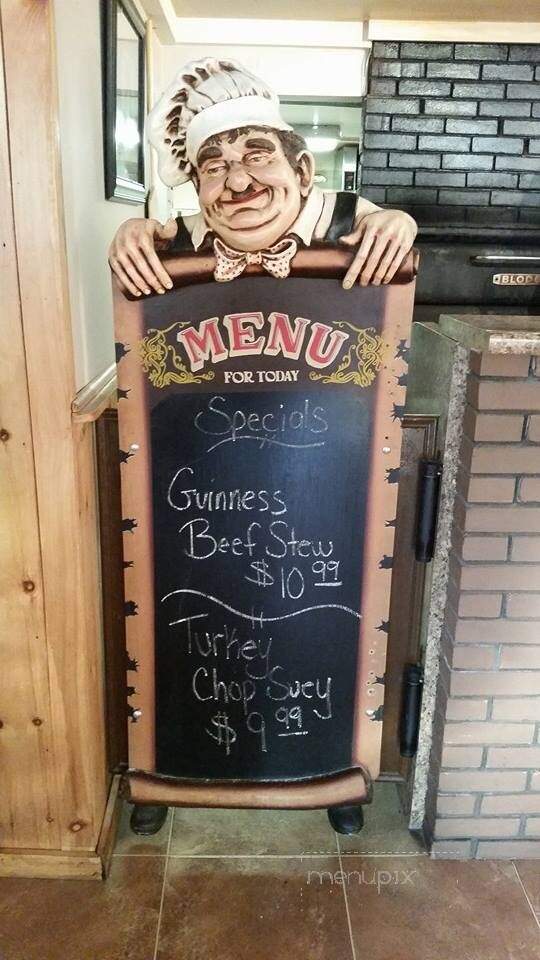 MENU
FOR TODAY
Specials
Guinness
Beef Stew
$10 99
Turkey
Chop Suey
$9 99
menupix